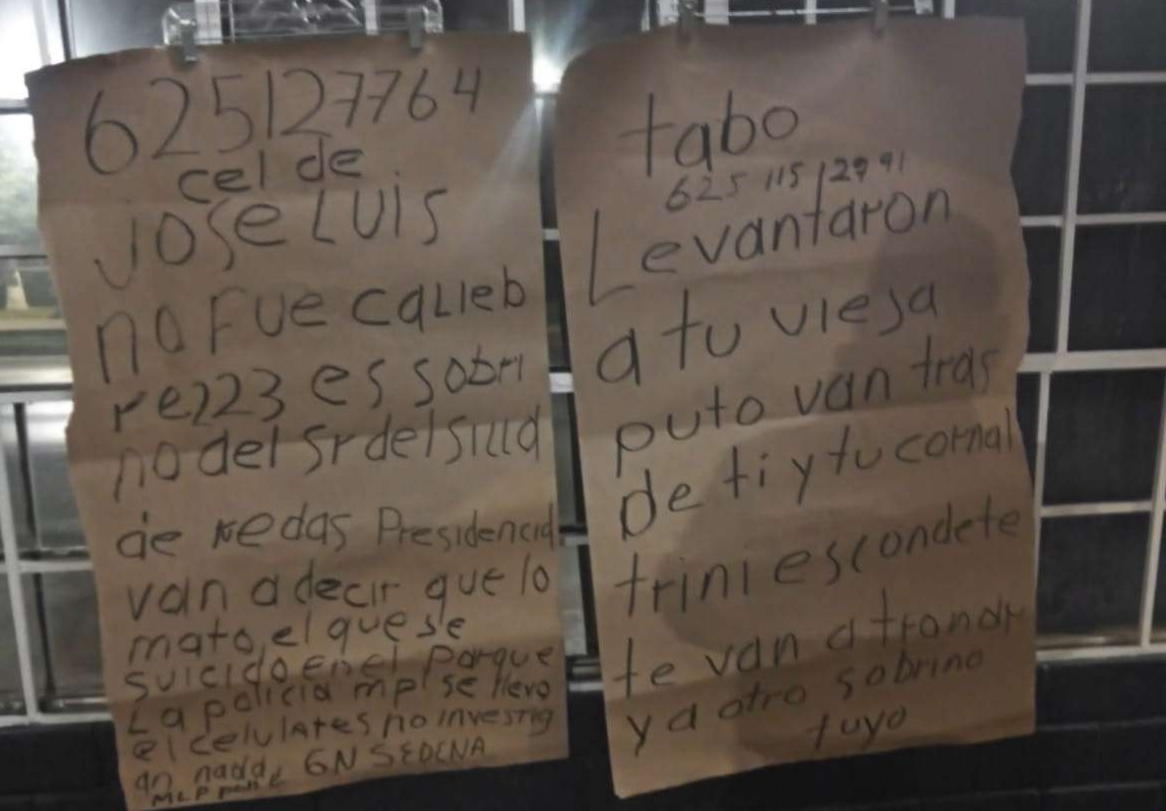 625127764
cel de
jose LUis
no Fue caLieb
re 223 es sobri
no del Sr del silla
de redas Presidencial
van a decir que lo
mato, el que se
suicido en el Parque
La policia mpl se llevo
el celulares no investig
an nada GN SEDENA
MLP
tabo
625 115 12991
Levantaron
a tu vieja
puto van tras
De ti y tu cornal
trini escondete
te van a tronar
y a otro sobrino
tuyo